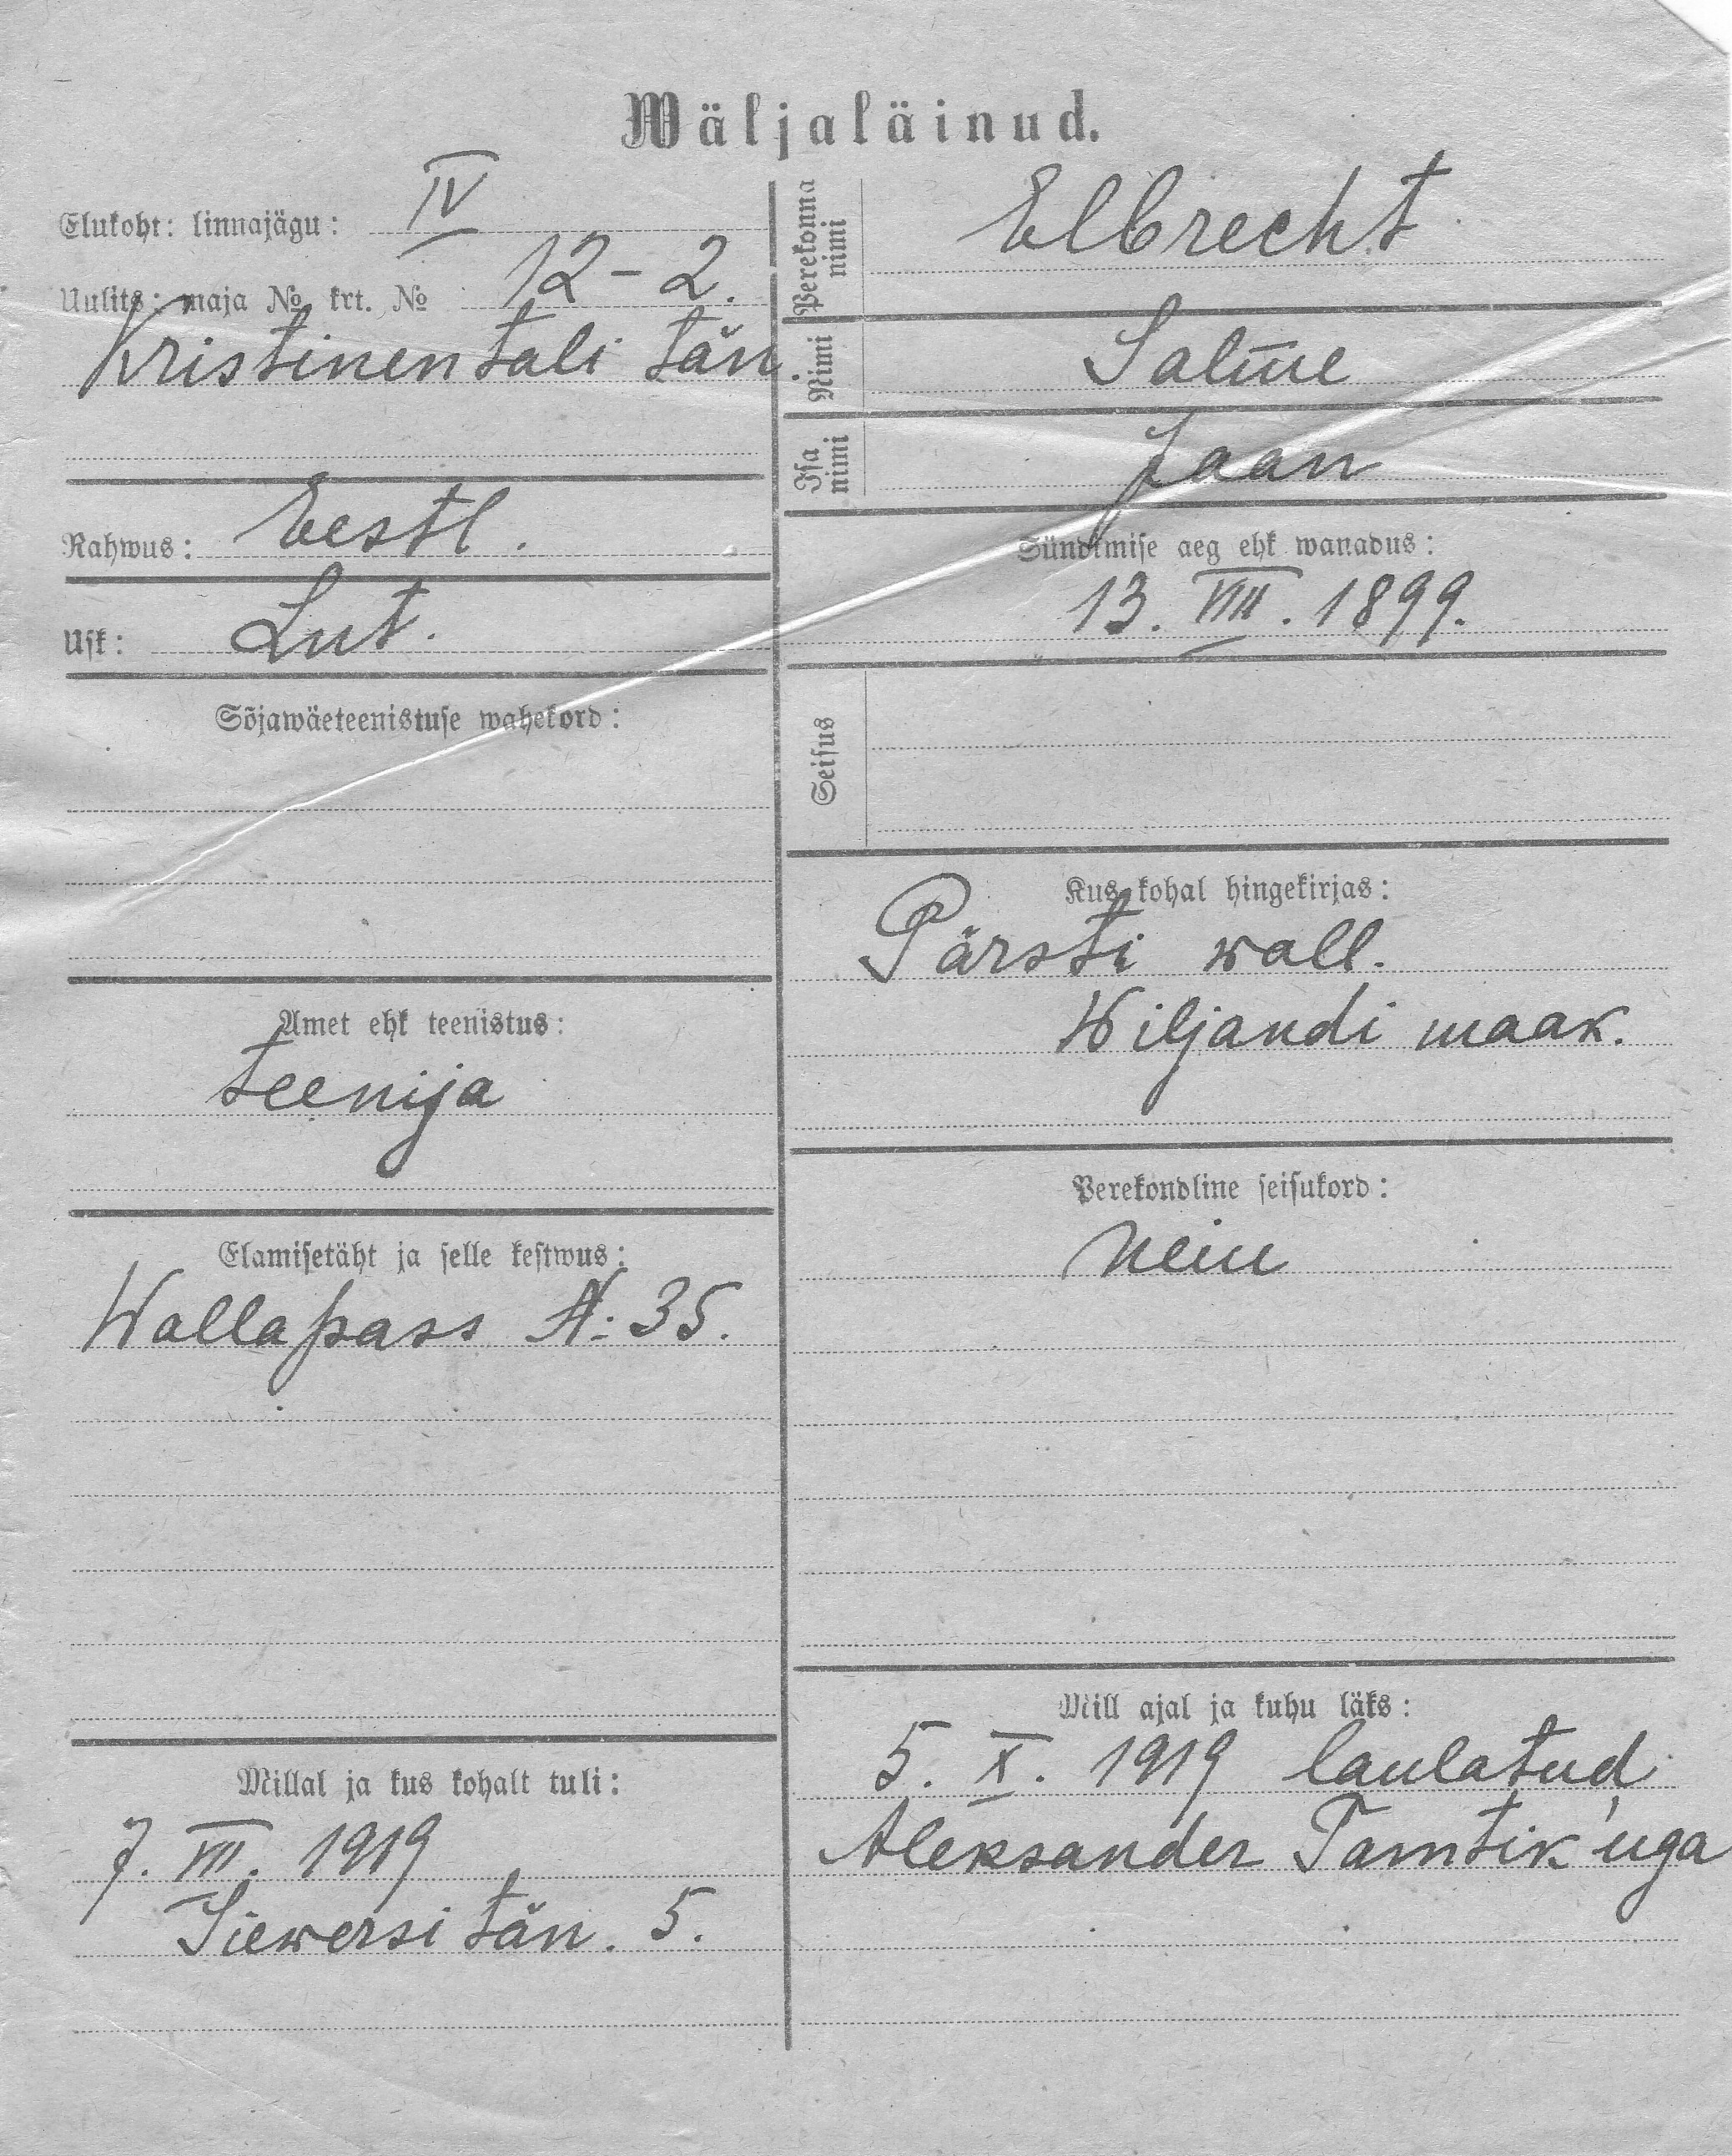 Wäljaläinud.
Elukoht: linnajägu: IV
Uulits: maja № krt. № 12-2.
Kristinentali tän.
Rahwus: Eestl.
Usk: Lut.
Sõjawäeteenistuse wahekord:
Amet ehk teenistus:
teenija
Elamisetäht ja selle kestwus:
Wallapass №: 35.
Millal ja kus kohalt tuli:
7. VII. 1919
Siewersi tän. 5.
Perekonna nimi Elbrecht
Nimi Salme
Isa nimi Jaan
Sündimise aeg ehk wanadus:
13. VIII. 1899.
Seisus
Kus kohal hingekirjas:
Pärsti wall.
Wiljandi maak.
Perekondline seisukord:
neiu
Mill ajal ja kuhu läks:
5. X. 1919 laulatud
Aleksander Tamtik'uga